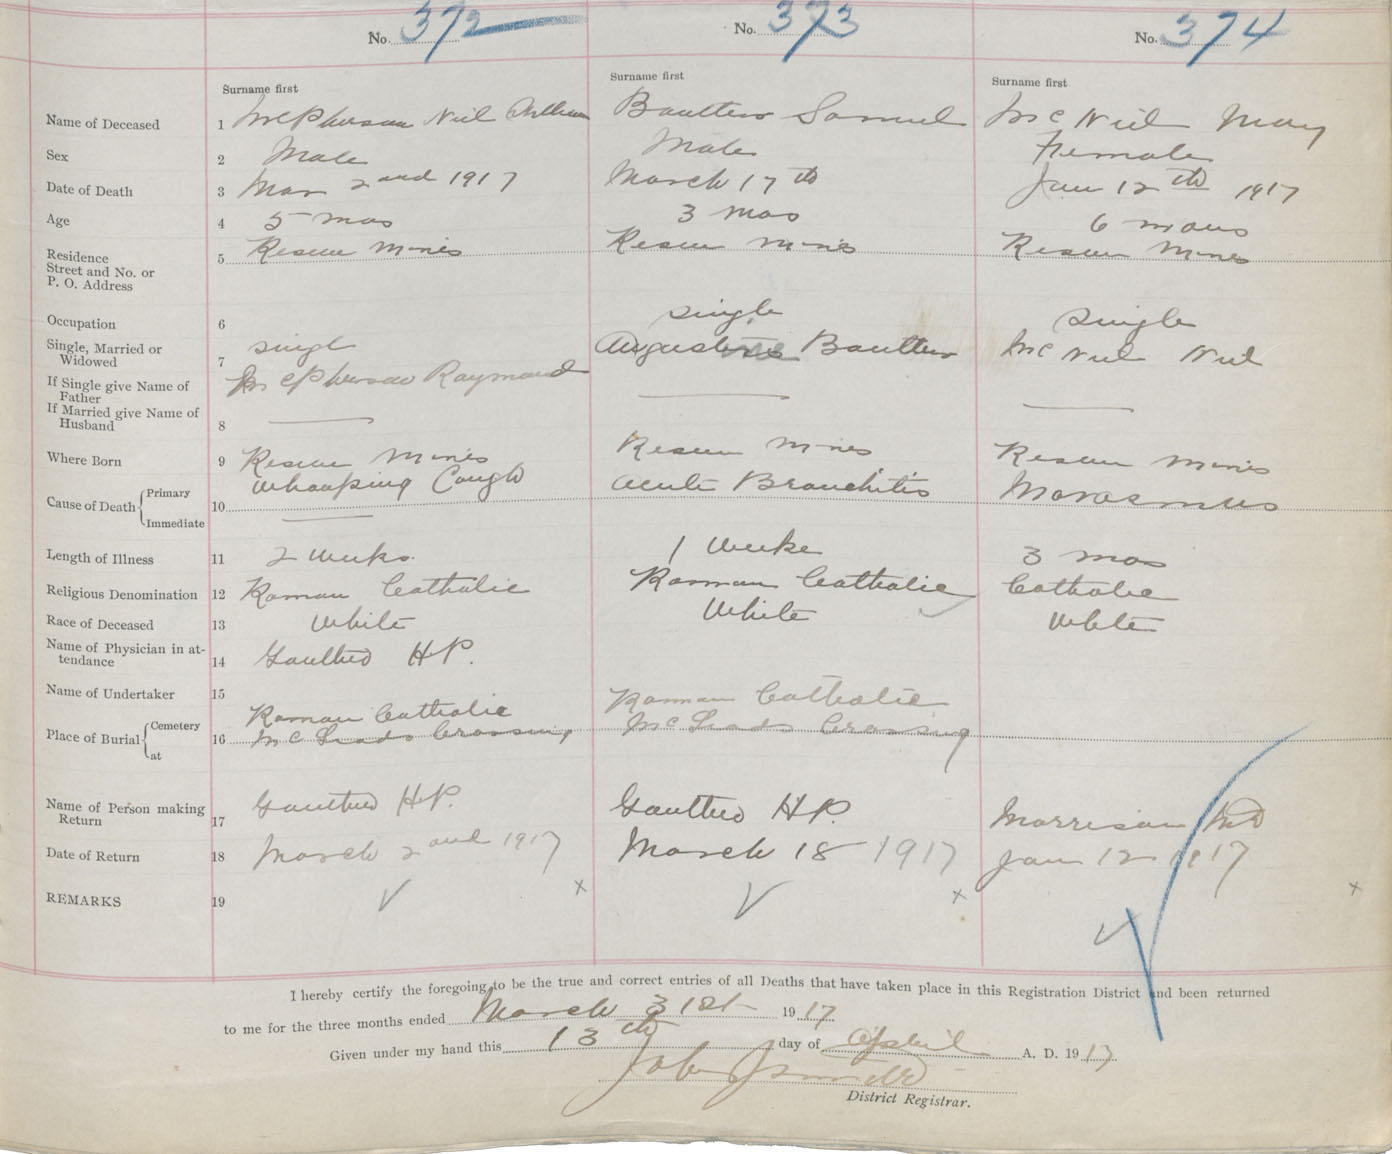 No. 372
No. 373
No. 374
Surname first
Surname first
Surname first
Name of Deceased 1 McPherson Neil Bautten Samuel McNeil May
Sex 2 Male Male Female
Date of Death 3 Mar 2nd 1917 March 17th Jan 12th 1917
Age 4 5 mos 3 mos 6 mons
Residence Street and No. or P. O. Address 5 Rescue Mines Rescue Mines Rescue Mines
Occupation 6
Single, Married or Widowed 7 single single single
If Single give Name of Father McPherson Raymond Bautten McNeil Neil
If Married give Name of Husband 8
Where Born 9 Rescue Mines Rescue Mines Rescue Mines
Cause of Death Primary 10 Whooping Cough Acute Bronchitis Marasmus
Immediate
Length of Illness 11 2 weeks. 1 weeke 3 mos
Religious Denomination 12 Roman Catholic Roman Catholic Catholic
Race of Deceased 13 White White White
Name of Physician in attendance 14 H P.
Name of Undertaker 15
Place of Burial Cemetery at 16 Roman Catholic Roman Catholic
McLeods Crossing McLeods Crossing
Name of Person making Return 17 H P. H P. Morrison MD
Date of Return 18 March 2nd 1917 March 18 1917 Jan 12 1917
REMARKS 19
I hereby certify the foregoing to be the true and correct entries of all Deaths that have taken place in this Registration District and been returned
to me for the three months ended March 31st 1917
Given under my hand this 13th day of April A. D. 1917
John
District Registrar.